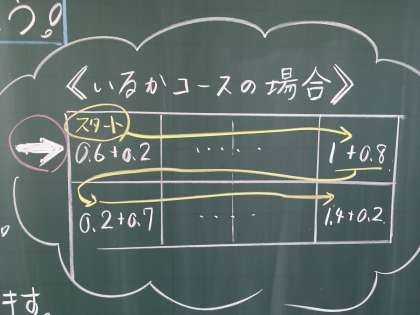 う。
《いるかコースの場合》
スタート
0.6+0.2 ..... 1+0.8
0.2+0.7 .... 1.4+0.2
。
きます。